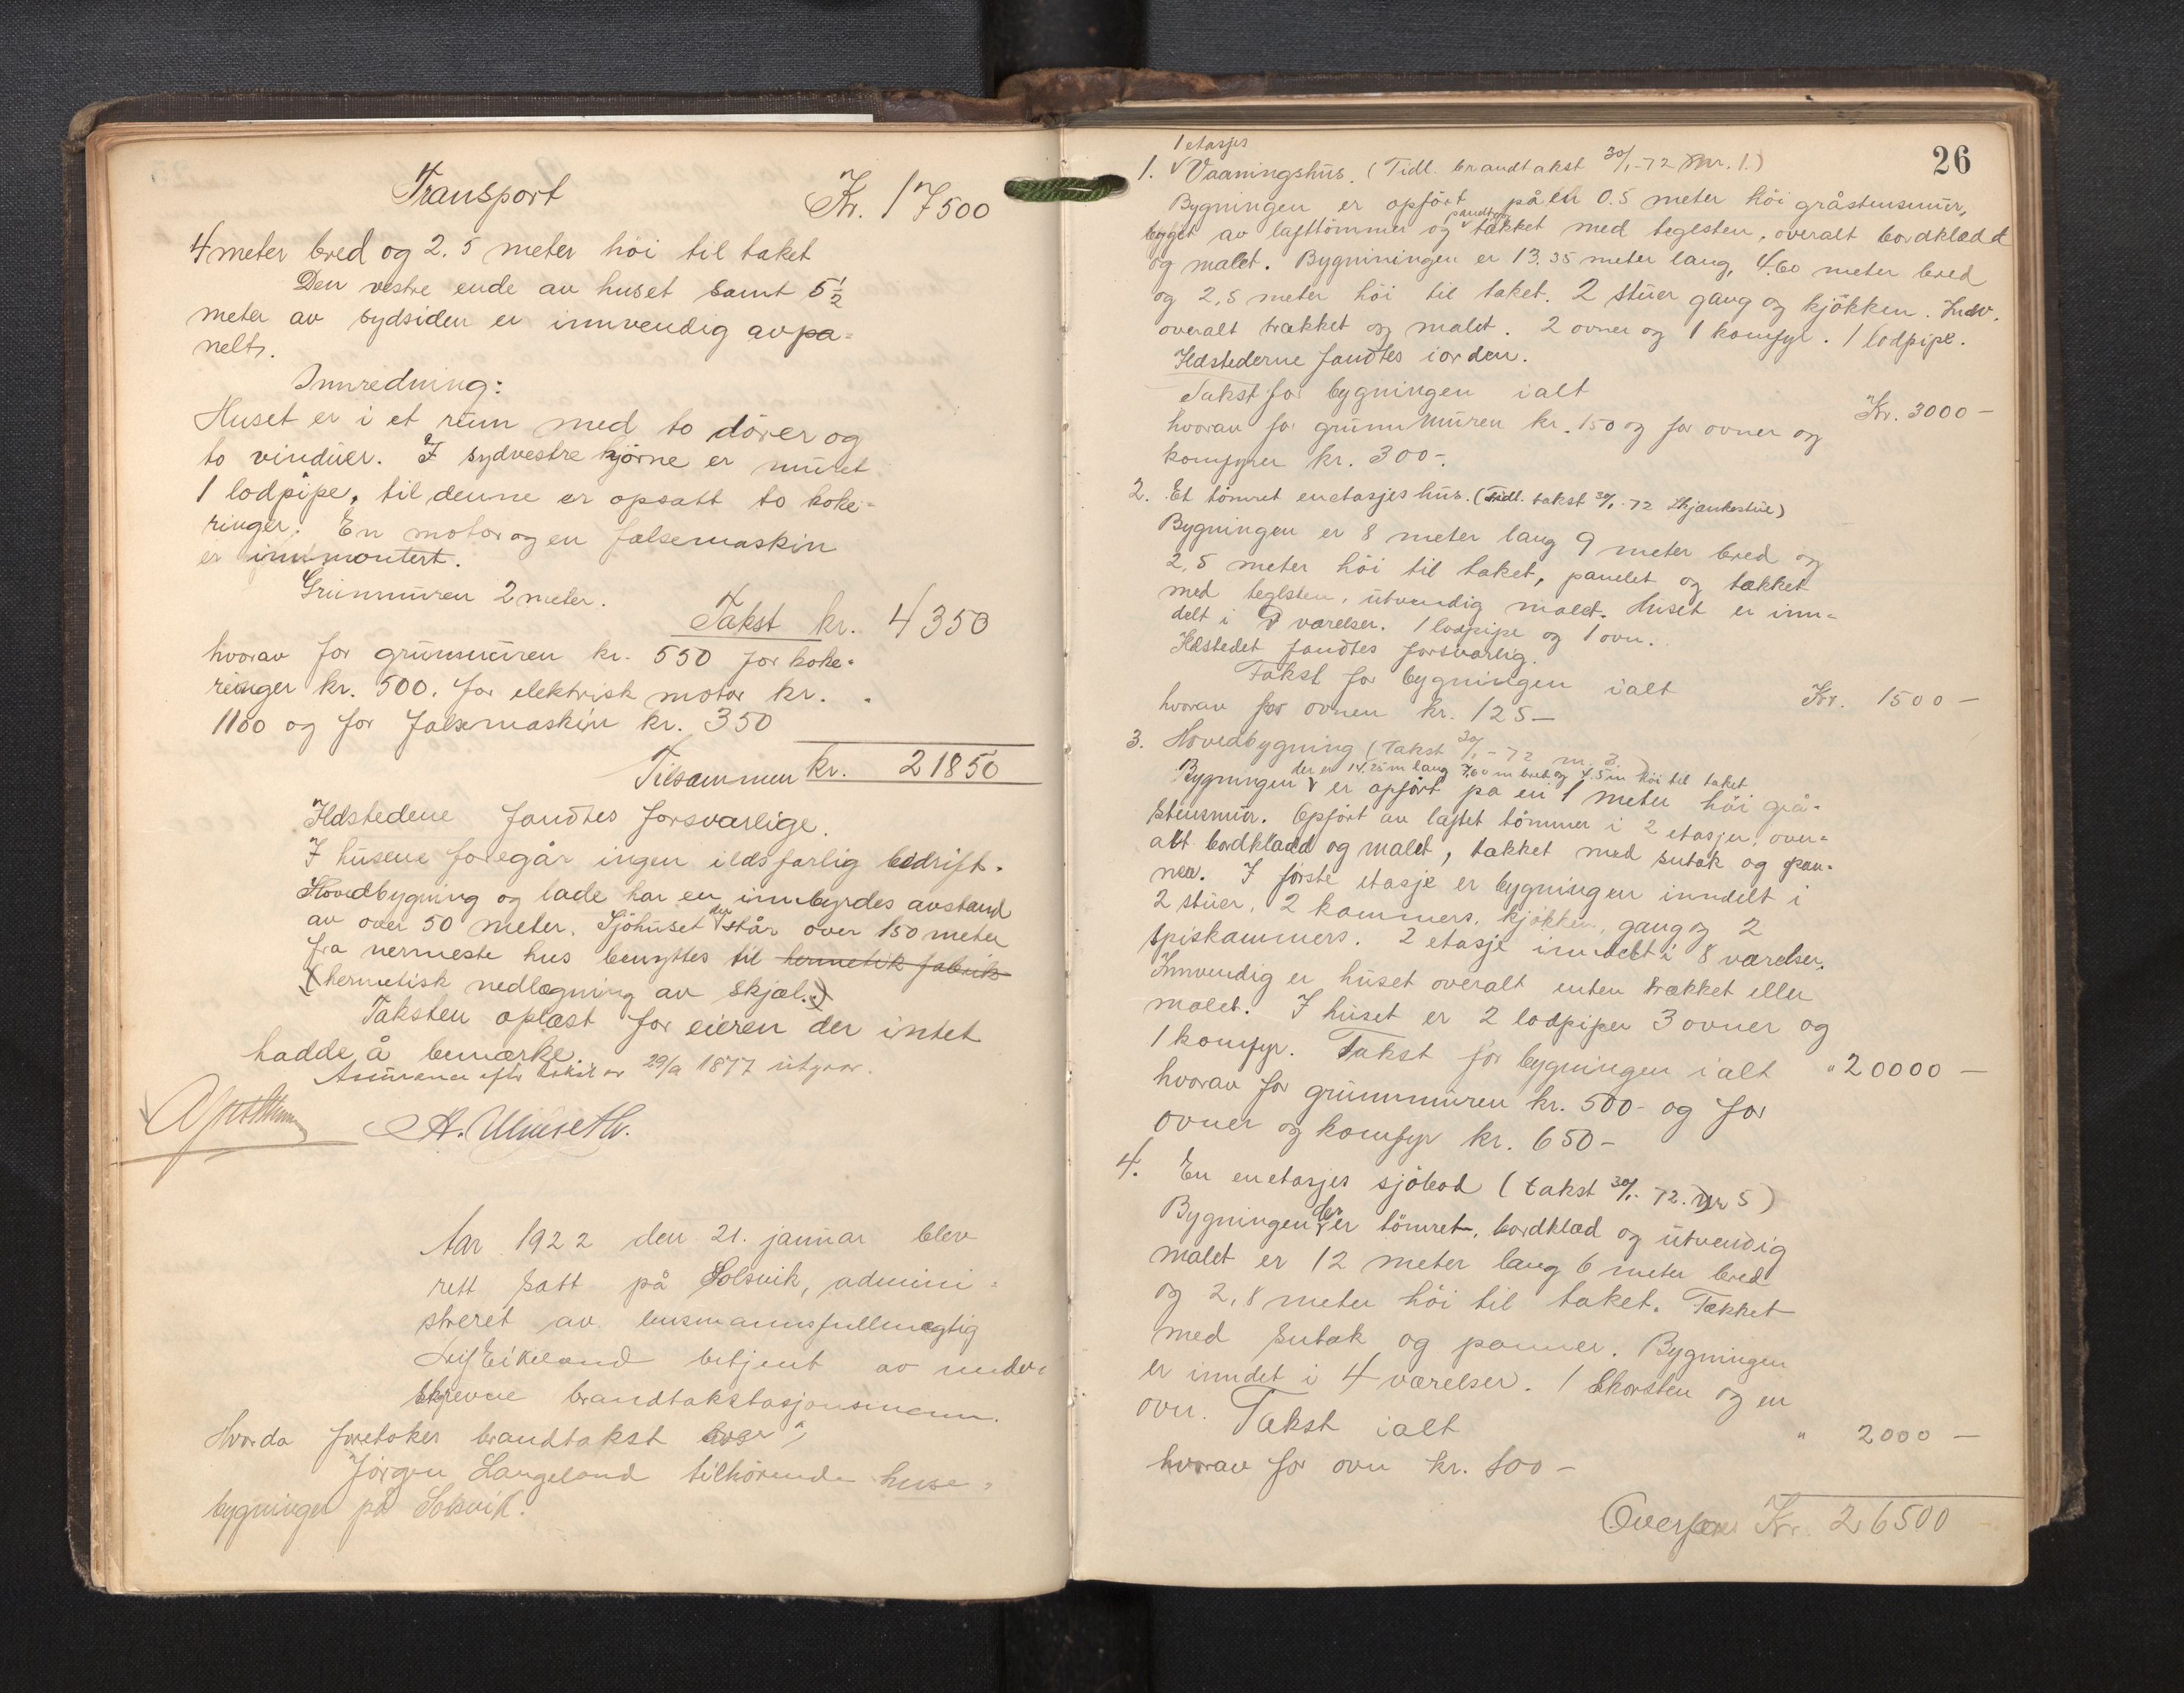 Transport Kr. 17500
4 meter bred og 2,5 meter höi til taket
Den vestre ende av huset samt 5 1/2
meter av sydsiden er innvendig avpa=
nelt.
Innredning:
Huset er i et rum med to dörer og
to vinduer. I sydvestre hjörne er muret
1 lodpipe, til denne er opsatt to koke=
ringer. En motor og en falsemaskin
er innmontert.
Grunnmuren 2 meter.
Takst kr. 4350
hvorav for grunnmuren kr. 550 for koke=
ringer kr. 500. for elektrisk motor kr.
1100 og for falsemaskin kr. 350
Tilsammen kr. 21850
Ildstedene fandtes forsvarlige.
I husene foregår ingen ildsfarlig bedrift.
Hovedbygning og lade har en innbyrdes avstand
av over 50 meter. Sjöhuset der står over 150 meter
fra nermeste hus benyttes til hermetik fabrik
(hermetisk nedlægning av skjæl.)
Taksten oplæst for eieren der intet
hadde å bemærke.
Assurance efter takst av 29/9 1877 utgaar.
A. Ulvseth.
Aar 1922 den 21. januar blev
rett satt på Solsvik, admini=
streret av lensmannsfullmægtig
Leif Eikeland betjent av under=
skrevne brandtakstasjonsmenn.
Hvorda foretokes brandtakst over
Jörgen Langeland tilhörende huse=
bygninger på Solsvik.
26
1 etasjes
1. Vaaningshus. (Tidl. brandtakst 30/1-72 Nr. 1.)
Bygningen er opfört på en 0.5 meter höi gråstensmur,
bygget av lafttömmer og tækket med teglsten, overalt bordklædd
og malet. Bygniningen er 13.35 meter lang, 4.60 meter bred
og 2,5 meter höi til taket. 2 stuer gang og kjökken. Indv.
overalt trækket og malet. 2 ovner og 1 komfyr. 1 lodpipe.
Ildstederne fandtes iorden.
Takst for bygningen ialt Kr. 3000 —
hvorav for grunnmuren kr. 150 og for ovner og
komfyrer kr. 300-.
2. Et tömret enetasjes hus. (Tidl. takst 30/1-72 Skjænkestue)
Bygningen er 8 meter lang 9 meter bred og
2,5 meter höi til taket, panelet og tækket
med teglsten, utvendig malet. Huset er inn=
delt i værelser. 1 lodpipe og 1 ovn.
Ildstedet fandtes forsvarlig.
Takst for bygningen ialt Kr. 1500 —
hvorav for ovnen kr. 125 —
3. Hovedbygning (Takst 30/1-72 nr. 3.)
der er 14.25 m lang 7.60 m bred og 4.5 m höi til taket
Bygningen er opfört på en 1 meter höi grå=
stensmur. Opfört av laftet tömmer i 2 etasjer, over=
alt bordklædd og malet, tækket med sutak og pan=
ner. I förste etasje er bygningen inndelt i
2 stuer, 2 kammers, kjökken, gang og 2
spiskammers. 2 etasje inndelt i 8 værelser.
Innvendig er huset overalt enten trækket eller
malet. I huset er 2 lodpiper 3 ovner og
1 komfyr. Takst for bygningen ialt " 20000 —
hvorav for grunnmuren kr. 500- og for
ovner og komfyr kr. 650 —
4. En enetasjes sjöbod (takst 30/1-72. Nr 5)
Bygningen der er tömret, bordklæd og utvendig
malet er 12 meter lang 6 meter bred
og 2,8 meter höi til taket. Tækket
med sutak og panner. Bygningen
er inndet i 4 værelser. 1 skorsten og en
ovn. Takst ialt " 2000 —
hvorav for ovn kr. 100 —
Overføres Kr. 26500